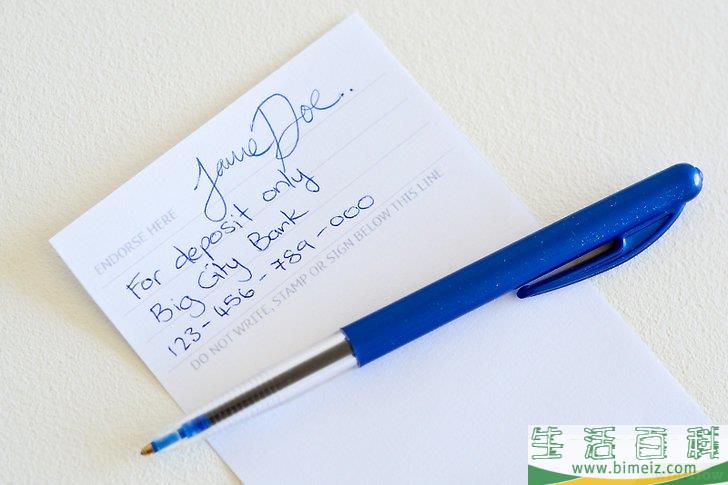 Jane Doe
ENDORSE HERE
For deposit only
Big City Bank
123-456-789-000
DO NOT WRITE, STAMP OR SIGN BELOW THIS LINE
生活百科
www.bimeiz.com